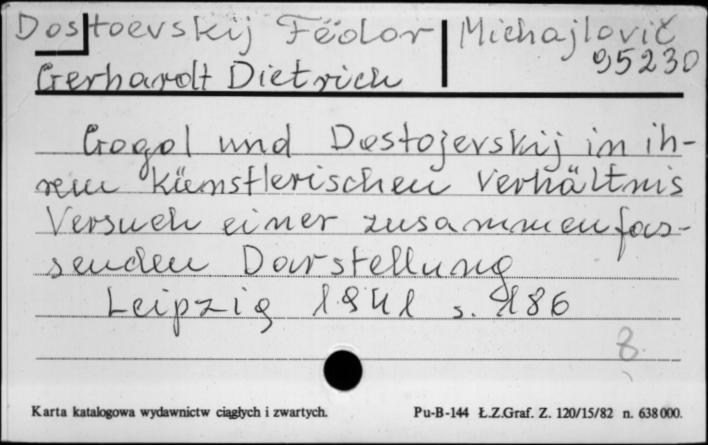 Dostoevskij Fëdor Michajlovič
95230
Gerhardt Dietrich
Gogol und Dostojevskij in ih-
rem künstlerischen Verhältnis
Versuch einer zusammenfas-
senden Darstellung
Leipzig 1941 s. 186
8
Karta katalogowa wydawnictw ciągłych i zwartych. Pu-B-144 Ł.Z.Graf. Z. 120/15/82 n. 638000.